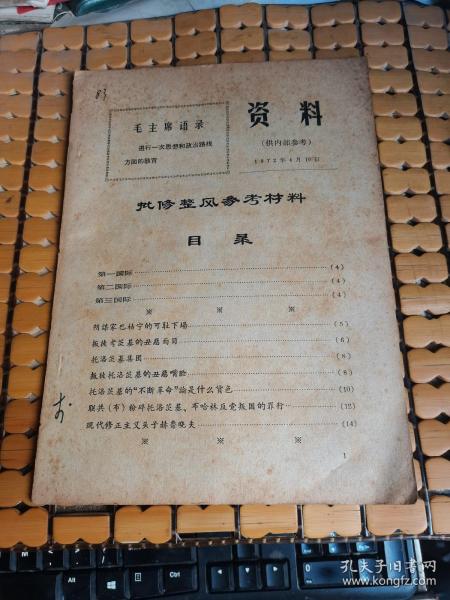 83
毛主席语录
进行一次思想和政治路线
方面的教育
资料
（供内部参考）
1972年4月10日
批修整风参考材料
目录
第一国际……(4)
第二国际……(4)
第三国际……(4)
※ ※ ※
阴谋家巴枯宁的可耻下场……(5)
叛徒考茨基的丑恶面目……(6)
托洛茨基集团……(8)
叛徒托洛茨基的丑恶嘴脸……(8)
托洛茨基的“不断革命”论是什么货色……(10)
联共（布）粉碎托洛茨基、布哈林反党叛国的罪行……(12)
现代修正主义头子赫鲁晓夫……(14)
※ ※ ※
1
Alt
Ctrl
孔夫子旧书网